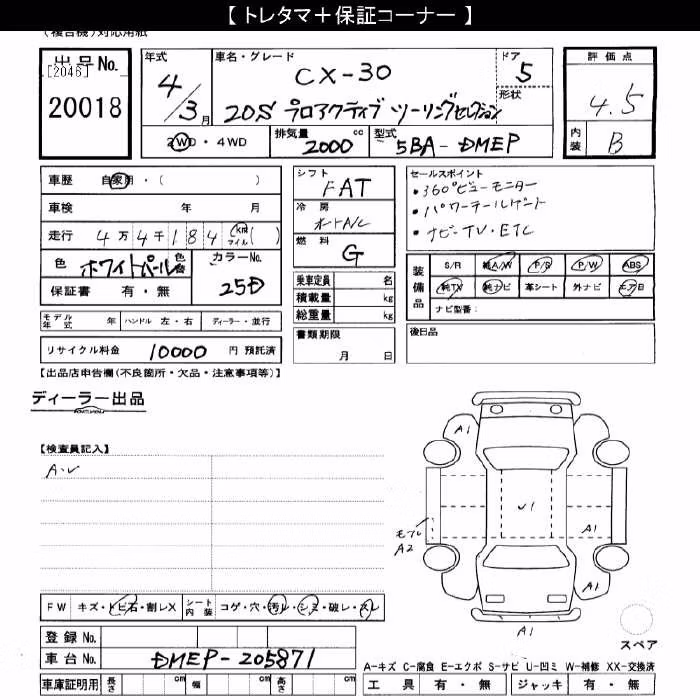 【 トレタマ＋保証コーナー 】
(複合機)対応用紙
出品No. [2046]
20018
年式 4/3月
車名・グレード CX-30
20S プロアクティブ ツーリングセレクション
ドア 5
形状
評価点 4.5
内装 B
2WD・4WD
排気量 2000 cc
型式 5BA-DMEP
車歴 自家用・( )
車検 年 月
走行 4万4千184 (km マイル)( )
色 ホワイトパール 色替
カラーNo. 25D
保証書 有・無
シフト FAT
冷房 オートA/C
燃料 G
乗車定員 名
積載量 kg
総重量 kg
セールスポイント
・360°ビューモニター
・パワーテールゲート
・ナビ-TV・ETC
装備品 S/R 純A/W P/S P/W ABS
純TV 純ナビ 革シート 外ナビ エアB
ナビ型番：
モデル年式 年 ハンドル 左・右 ディーラー・並行
書類期限 月 日
後日品
リサイクル料金 10000 円 預託済
【出品店申告欄(不良箇所・欠品・注意事項等)】
ディーラー出品
【検査員記入】
A・U
A1
U1
モール
A2
A1
A1
A1
FW キズ・トビ石・割レX
シート内装 コゲ・穴・汚レ・シミ・破レ・スレ
登録No.
車台No. DMEP-205871
スペア
A-キズ C-腐食 E-エクボ S-サビ U-凹ミ W-補修 XX-交換済
車庫証明用 長さ cm 幅 cm 高さ cm
工具 有・無 ジャッキ 有・無